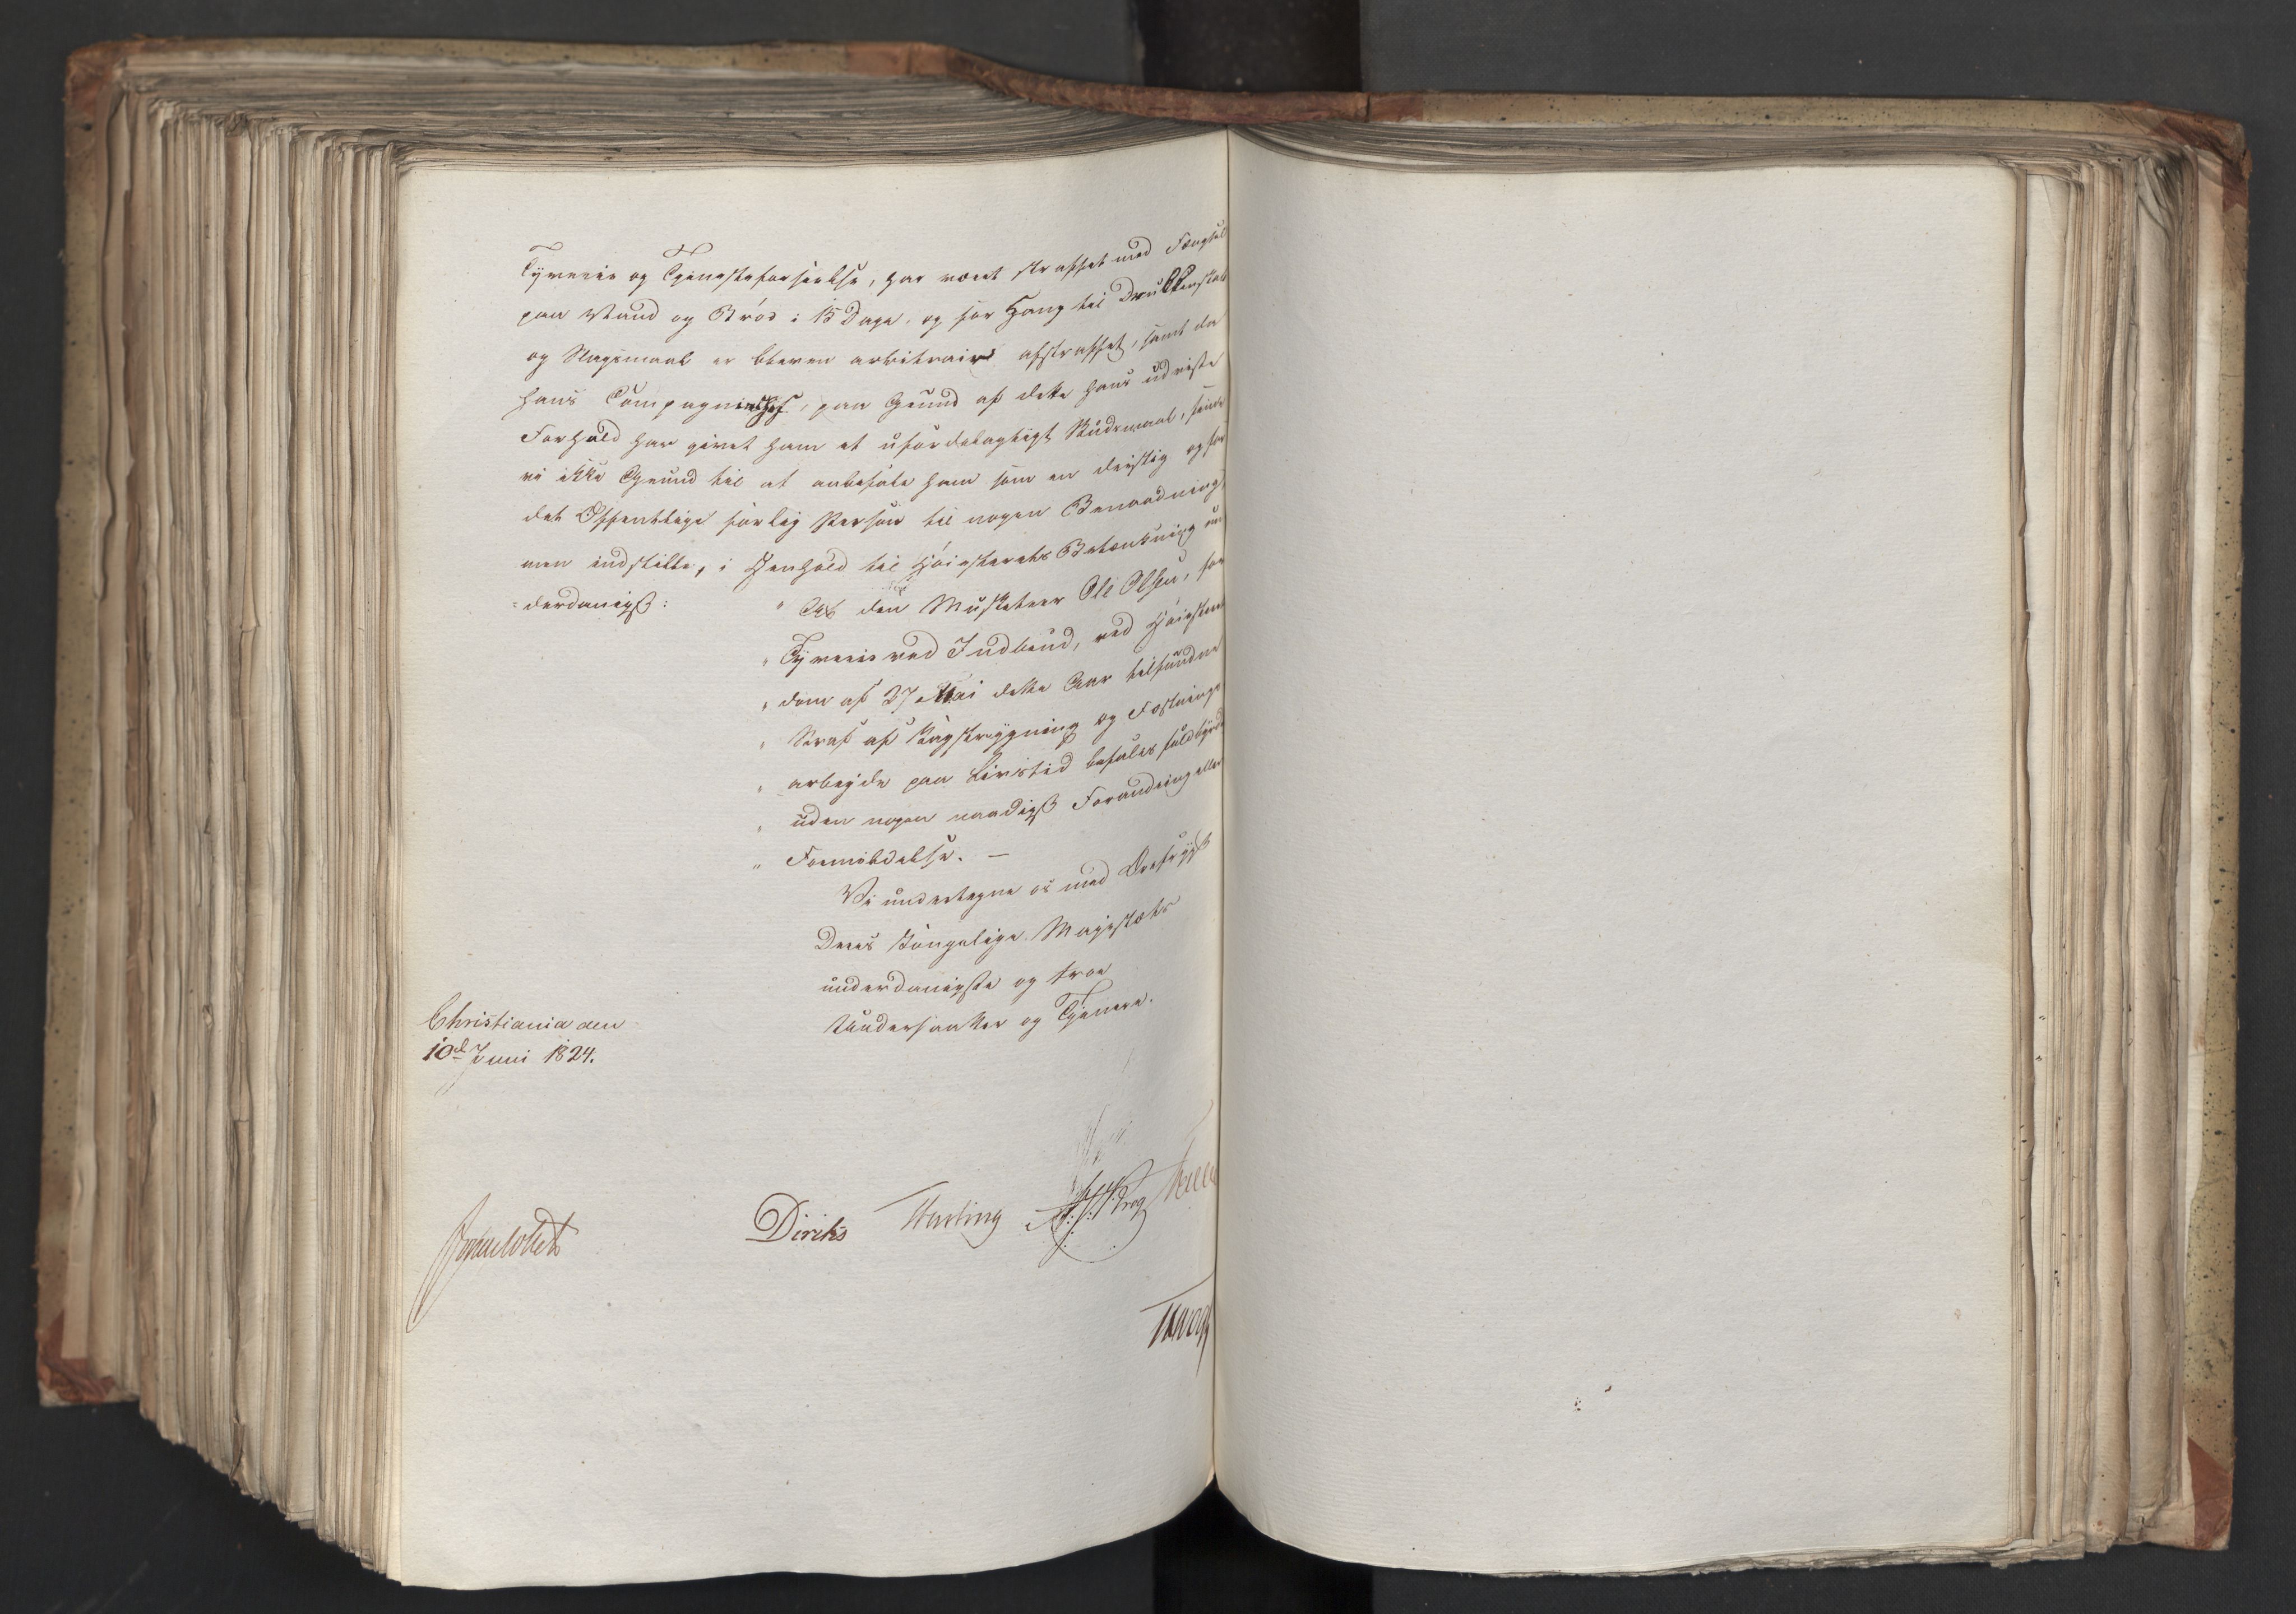 Tyverie og Tjenesteforseelse, har været straffet med Fængsel
paa Vand og Brød i 15 Dage, og for Hang til Drukkenskab
og Slagsmaal er bleven arbitrair afstraffet, samt da
hans Compagniechef, paa Grund af dette hans udviste
Forhold har givet ham et ufordelagtigt Skudsmaal, finde
vi ikke Grund til at anbefale ham som en dristig og for
det Offentlige farlig Person til nogen Benaadning,
men indstille, i Henhold til Høiesterets Betænkning un
-derdanigst:
" At den Musketeer Ole Olsen, for
" Tyverie ved Indbrud, ved Høiesteret
" dom af 27 Mai dette Aar tilfundne
" Straf af Kagstrygning og Fæstnings
" arbeyde paa Livstid befales fuldbyrdet
" uden nogen naadigst Forandring eller
" Formildelse. —
Vi undertegne os med Ærefrygt
Deres Kongelige Majestæts
underdanigste og troe
Undersaatter og Tjenere.
Christiania den
10d Juni 1824.
Diriks Krog